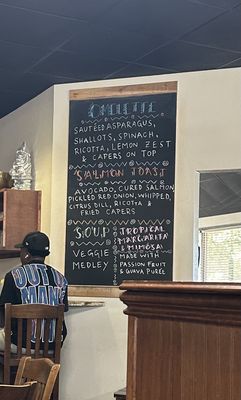 OMELETTE
SAUTÉED ASPARAGUS,
SHALLOTS, SPINACH,
RICOTTA, LEMON ZEST
& CAPERS ON TOP
SALMON TOAST
AVOCADO, CURED SALMON
PICKLED RED ONION, WHIPPED,
CITRUS DILL, RICOTTA &
FRIED CAPERS
SOUP
VEGGIE
MEDLEY
TROPICAL
MARGARITA
& MIMOSA
MADE WITH
PASSION FRUIT
& GUAVA PURÉE
OUT
MAN